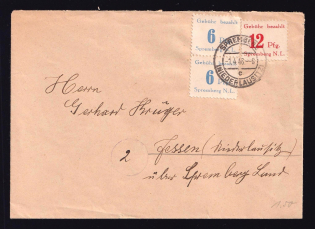 Gebühr bezahlt
6 Pfg.
Spremberg N.L.
Gebühr bezahlt
12 Pfg.
Spremberg N.L.
6 Pfg.
Spremberg N.L.
SPREMBERG
(NIEDERLAUSITZ)
c
Herrn
Gerhard Krüger
2 Jessen (Niederlausitz)
über Spremberg Land